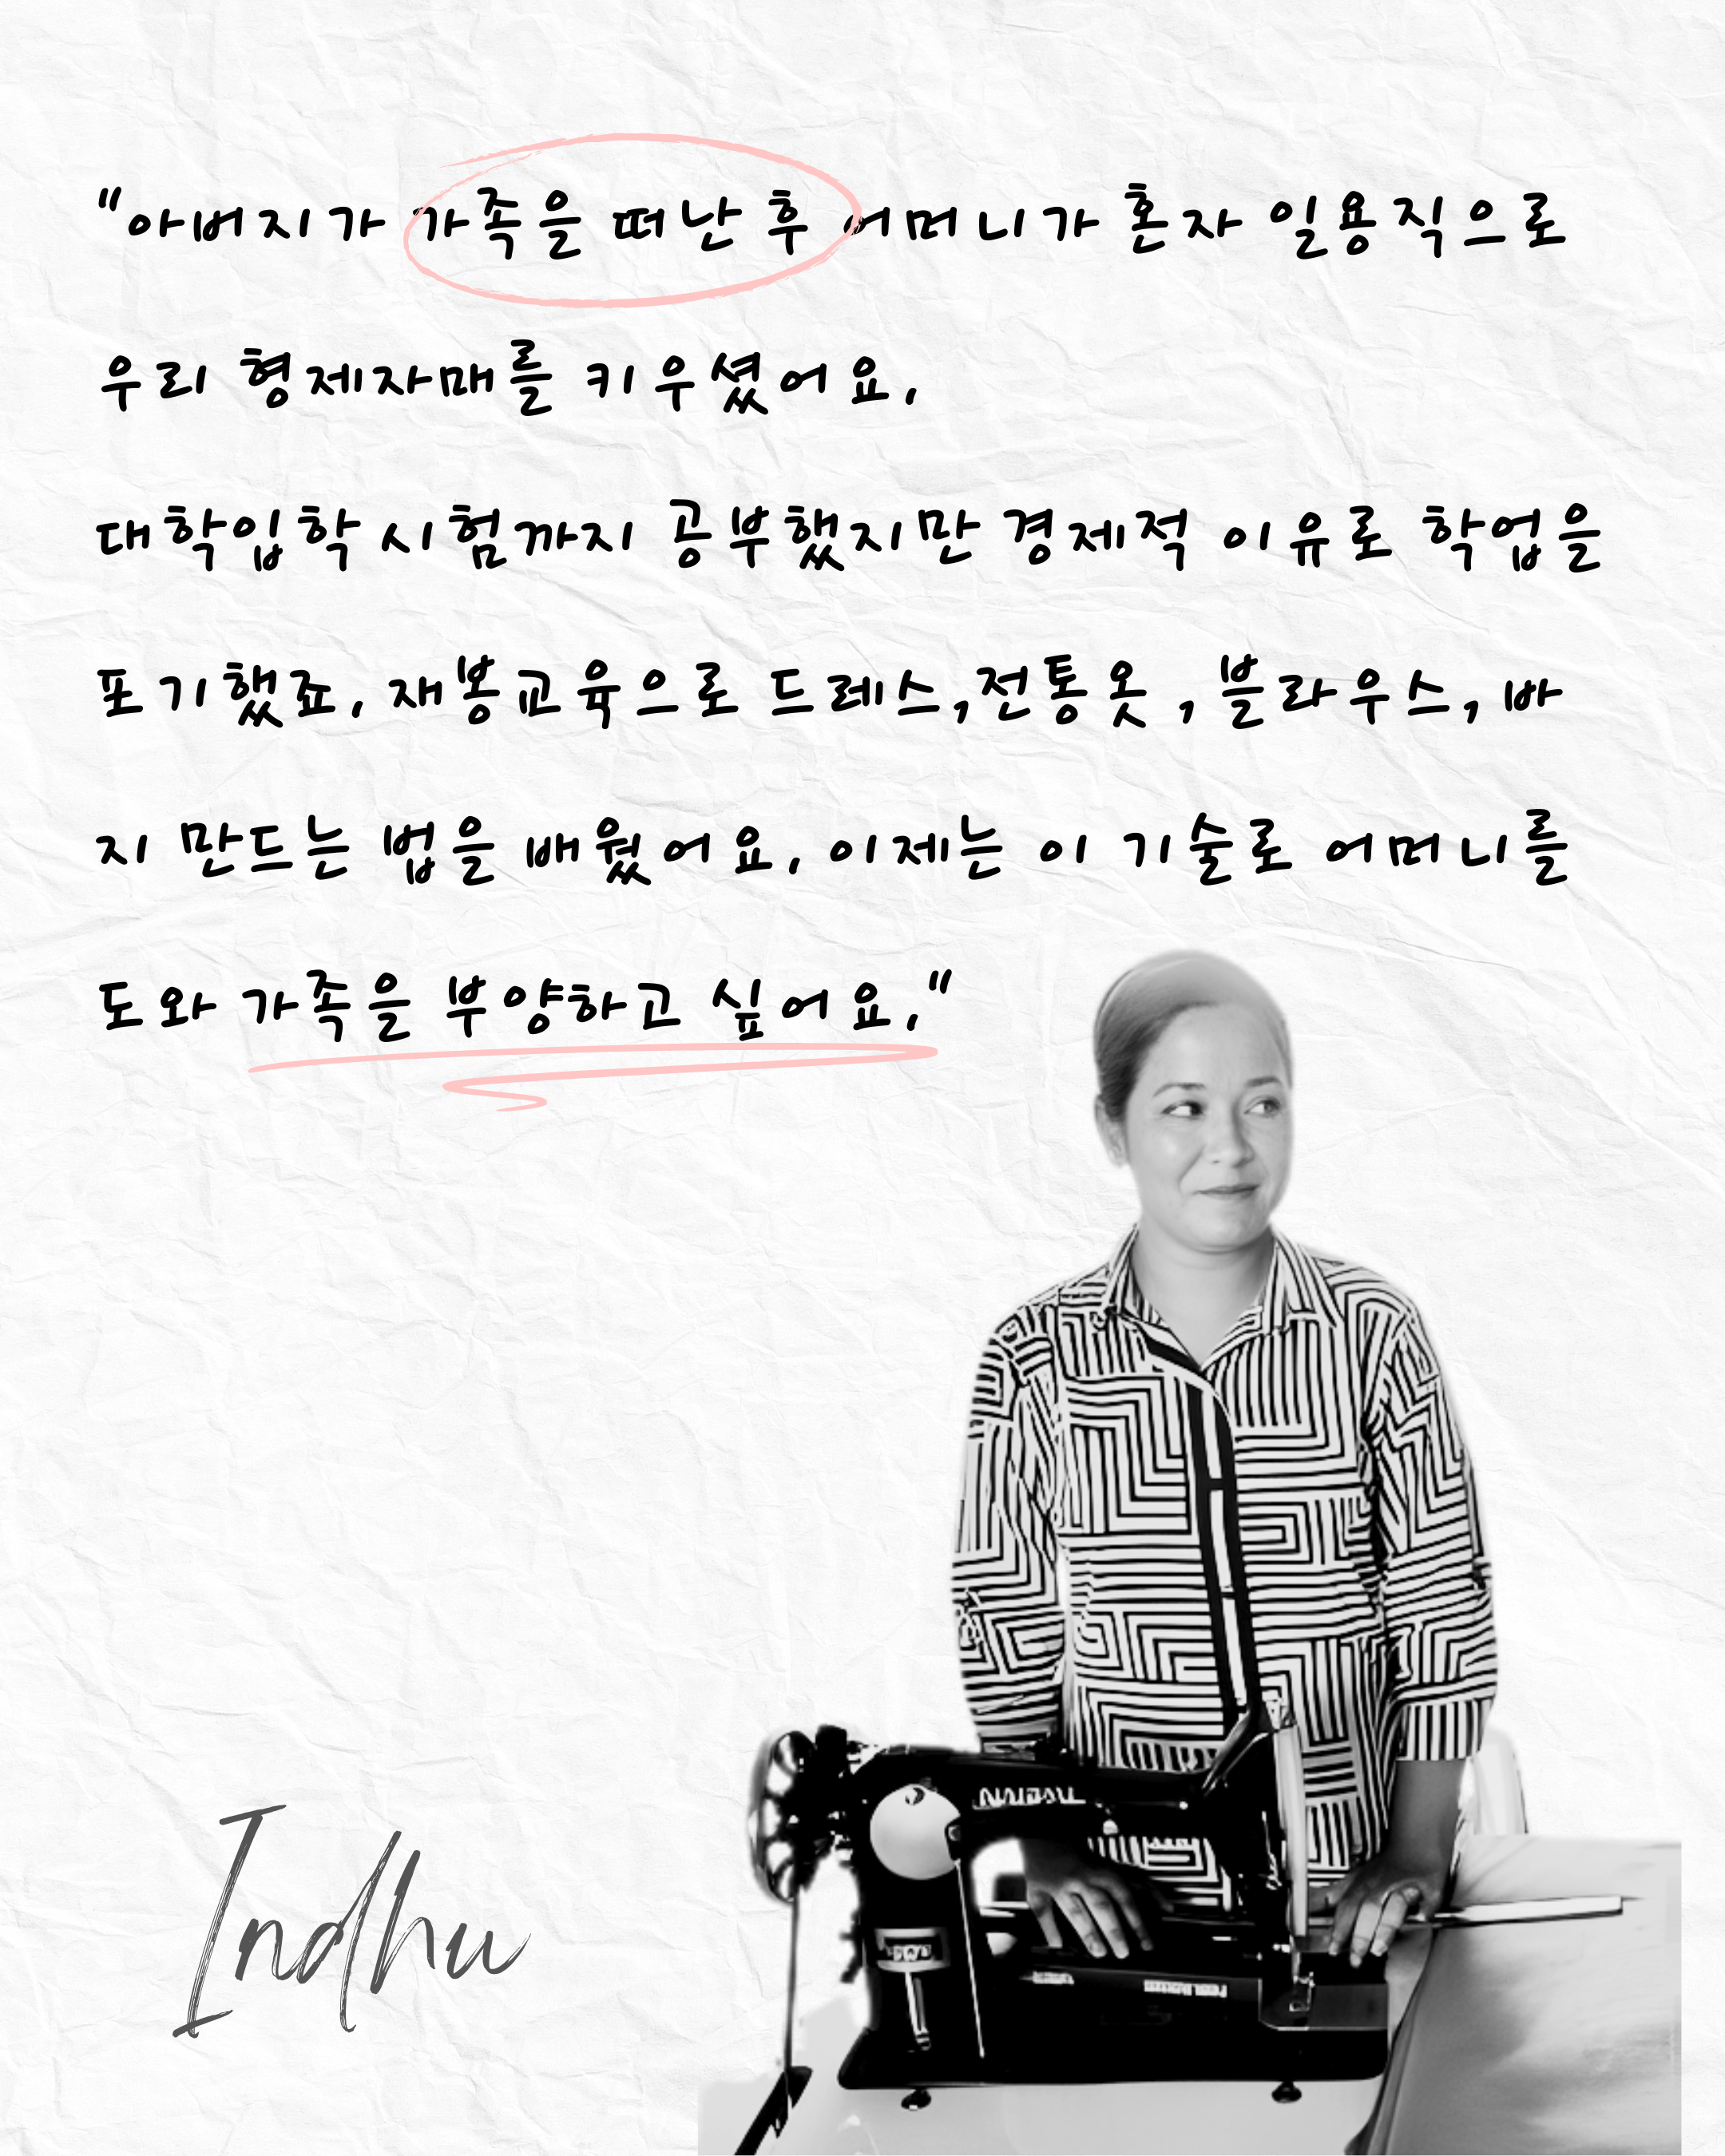 "아버지가 가족을 떠난 후 어머니가 혼자 일용직으로
우리 형제자매를 키우셨어요.
대학입학 시험까지 공부했지만 경제적 이유로 학업을
포기했죠. 재봉교육으로 드레스,전통옷 , 블라우스, 바
지 만드는 법을 배웠어요. 이제는 이 기술로 어머니를
도와 가족을 부양하고 싶어요."
Indhu